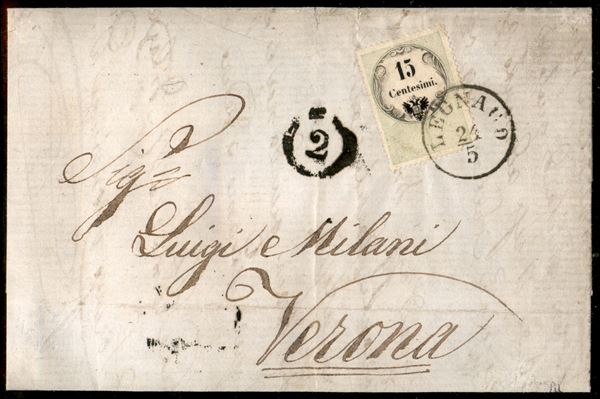 15
Centesimi.
LEGNAGO
24
5
2
Sigr
Luigi Milani
Verona